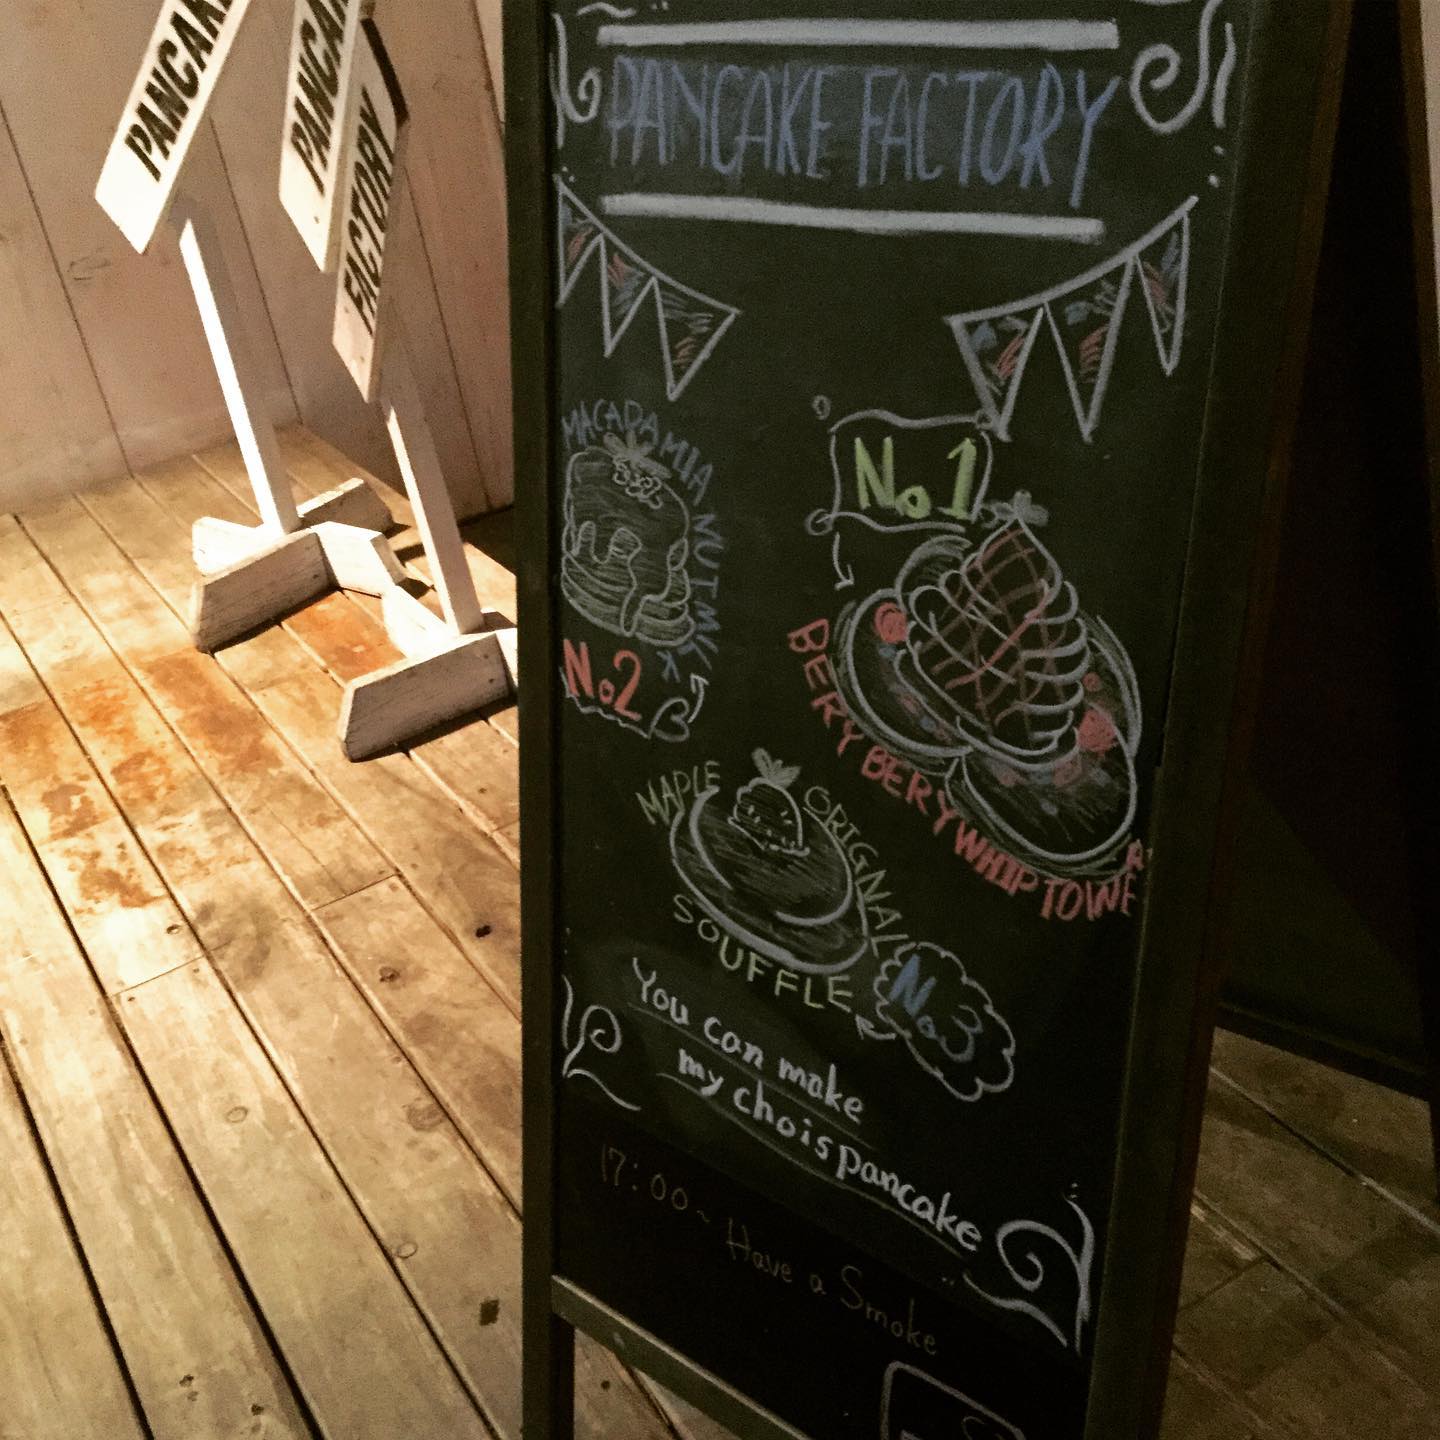 PANCAK
PANCA
FACTORY
PANCAKE FACTORY
MACADAMIA NUT MILK
No.2
No.1
BERY BERY WHIP TOWER
MAPLE ORIGNAL
SOUFFLE
No.3
You can make
my chois pancake
17:00~ Have a Smoke